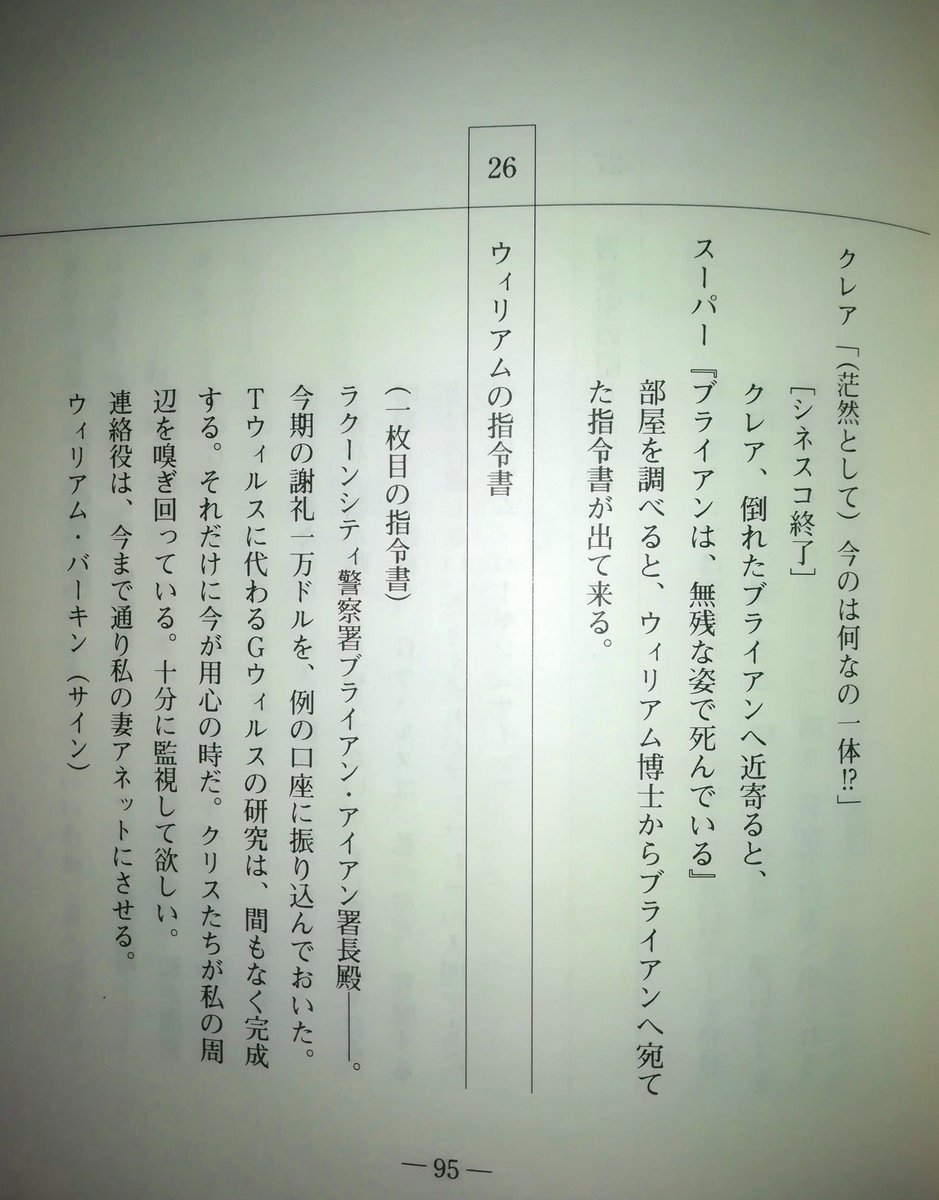 クレア「(茫然として)今のは何なの一体!?」
[シネスコ終了]
クレア、倒れたブライアンへ近寄ると、
スーパー『ブライアンは、無残な姿で死んでいる』
部屋を調べると、ウィリアム博士からブライアンへ宛て
た指令書が出て来る。
26 ウィリアムの指令書
(一枚目の指令書)
ラクーンシティ警察署ブライアン・アイアン署長殿――。
今期の謝礼一万ドルを、例の口座に振り込んでおいた。
Tウィルスに代わるGウィルスの研究は、間もなく完成
する。それだけに今が用心の時だ。クリスたちが私の周
辺を嗅ぎ回っている。十分に監視して欲しい。
連絡役は、今まで通り私の妻アネットにさせる。
ウィリアム・バーキン(サイン)
―95―